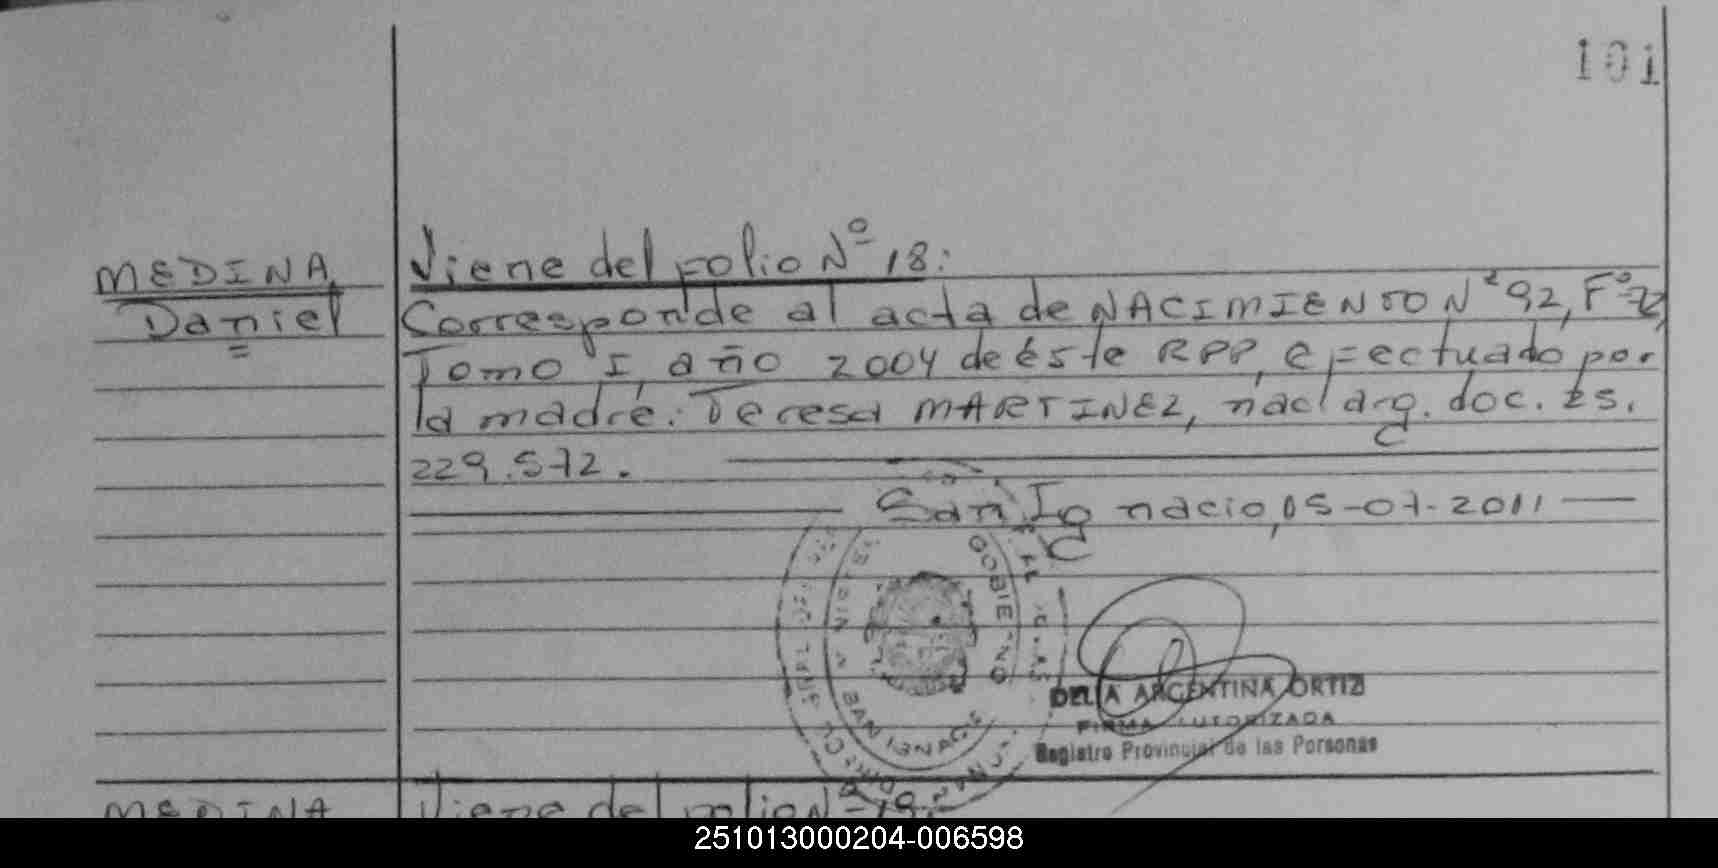 101
MEDINA, Viene del Folio Nº 18:
Daniel Corresponde al acta de NACIMIENTO Nº 92, Fº
Tomo I, año 2004 de éste RPP, efectuado por
la madre: Teresa MARTINEZ, nacl arg. doc. Es.
229.572.
San Ignacio, 05-07-2011
GOBIERNO
DELIA ARGENTINA ORTIZ
FIRMA AUTORIZADA
Registro Provincial de las Personas
MEDINA Viene del Folio Nº 19:
251013000204-006598